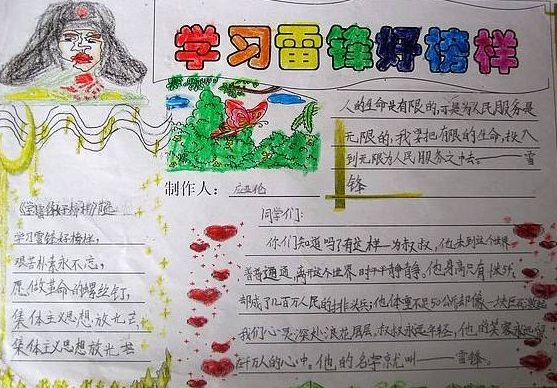 学习雷锋好榜样
人的生命是有限的,可是为人民服务是
无限的,我要把有限的生命,投入
到无限为人民服务之中去。——雷
锋
制作人:
学习雷锋好榜样,
艰苦朴素永不忘,
愿做革命的螺丝钉,
集体主义思想放光芒,
集体主义思想放光芒
同学们:
你们知道吗?有这样一为叔叔,他来到这个世界
普普通通,离开这个世界时平平静静。他身高只有
却成了几百万人民的
我们心灵深处浪花层层,叔叔永远年轻,他的笑容永远
千万人的心中。他,的名字就叫——雷锋。